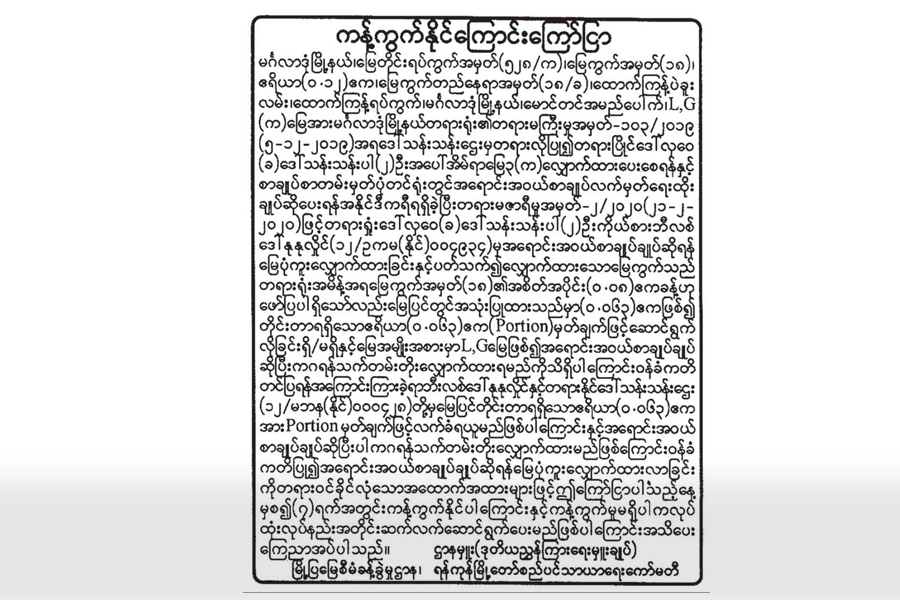 ကန့်ကွက်နိုင်ကြောင်းကြော်ငြာ
မင်္ဂလာဒုံမြို့နယ်၊မြေတိုင်းရပ်ကွက်အမှတ်(၅၂၈/က)၊မြေကွက်အမှတ်(၁၈)၊
ဧရိယာ(၀.၁၂)ဧက၊မြေကွက်တည်နေရာအမှတ်(၁၈/ခ)၊ထောက်ကြန့်ပဲခူး
လမ်း၊ထောက်ကြန့်ရပ်ကွက်၊မင်္ဂလာဒုံမြို့နယ်၊မောင်တင်အမည်ပေါက်၊L,G
(က)မြေအားမင်္ဂလာဒုံမြို့နယ်တရားရုံး၏တရားမကြီးမှုအမှတ်-၁၀၃/၂၀၁၉
(၅-၁၂-၂၀၁၉)အရဒေါ်သန်းသန်းဌေးမှတရားလိုပြု၍တရားပြိုင်ဒေါ်လှဝေ
(ခ)ဒေါ်သန်းသန်းပါ(၂)ဦးအပေါ်အိမ်ရာမြေ၃(က)လျှောက်ထားပေးစေရန်နှင့်
စာချုပ်စာတမ်းမှတ်ပုံတင်ရုံးတွင်အရောင်းအဝယ်စာချုပ်လက်မှတ်ရေးထိုး
ချုပ်ဆိုပေးရန်အနိုင်ဒီကရီရရှိခဲ့ပြီးတရားမဇာရီမှုအမှတ်-၂/၂၀၂၀(၂၁-၂-
၂၀၂၀)ဖြင့်တရားရှုံးဒေါ်လှဝေ(ခ)ဒေါ်သန်းသန်းပါ(၂)ဦးကိုယ်စားဘီလစ်
ဒေါ်နုနုလှိုင်(၁၂/ဥကမ(နိုင်)၀၀၄၉၃၄)မှအရောင်းအဝယ်စာချုပ်ချုပ်ဆိုရန်
မြေပုံကူးလျှောက်ထားခြင်းနှင့်ပတ်သက်၍လျှောက်ထားသောမြေကွက်သည်
တရားရုံးအမိန့်အရမြေကွက်အမှတ်(၁၈)၏အစိတ်အပိုင်း(၀.၀၈)ဧကခန့်ဟု
ဖော်ပြပါရှိသော်လည်းမြေပြင်တွင်အသုံးပြုထားသည်မှာ(၀.၀၆၃)ဧကဖြစ်၍
တိုင်းတာရရှိသောဧရိယာ(၀.၀၆၃)ဧက(Portion)မှတ်ချက်ဖြင့်ဆောင်ရွက်
လိုခြင်းရှိ/မရှိနှင့်မြေအမျိုးအစားမှာL,Gမြေဖြစ်၍အရောင်းအဝယ်စာချုပ်ချုပ်
ဆိုပြီးကဂရန်သက်တမ်းတိုးလျှောက်ထားရမည်ကိုသိရှိပါကြောင်းဝန်ခံကတိ
တင်ပြရန်အကြောင်းကြားခဲ့ရာဘီးလစ်ဒေါ်နုနုလှိုင်နှင့်တရားနိုင်ဒေါ်သန်းသန်းဌေး
(၁၂/မဘန(နိုင်)၀၀၀၄၂၈)တို့မှမြေပြင်တိုင်းတာရရှိသောဧရိယာ(၀.၀၆၃)ဧက
အားPortionမှတ်ချက်ဖြင့်လက်ခံရယူမည်ဖြစ်ပါကြောင်းနှင့်အရောင်းအဝယ်
စာချုပ်ချုပ်ဆိုပြီးပါကဂရန်သက်တမ်းတိုးလျှောက်ထားမည်ဖြစ်ကြောင်းဝန်ခံ
ကတိပြု၍အရောင်းအဝယ်စာချုပ်ချုပ်ဆိုရန်မြေပုံကူးလျှောက်ထားလာခြင်း
ကိုတရားဝင်ခိုင်လုံသောအထောက်အထားများဖြင့်ဤကြော်ငြာပါသည့်နေ့
မှစ၍(၇)ရက်အတွင်းကန့်ကွက်နိုင်ပါကြောင်းနှင့်ကန့်ကွက်မှုမရှိပါကလုပ်
ထုံးလုပ်နည်းအတိုင်းဆက်လက်ဆောင်ရွက်ပေးမည်ဖြစ်ပါကြောင်းအသိပေး
ကြေညာအပ်ပါသည်။ ဌာနမှူး(ဒုတိယညွှန်ကြားရေးမှူးချုပ်)
မြို့ပြမြေစီမံခန့်ခွဲမှုဌာန၊ ရန်ကုန်မြို့တော်စည်ပင်သာယာရေးကော်မတီ